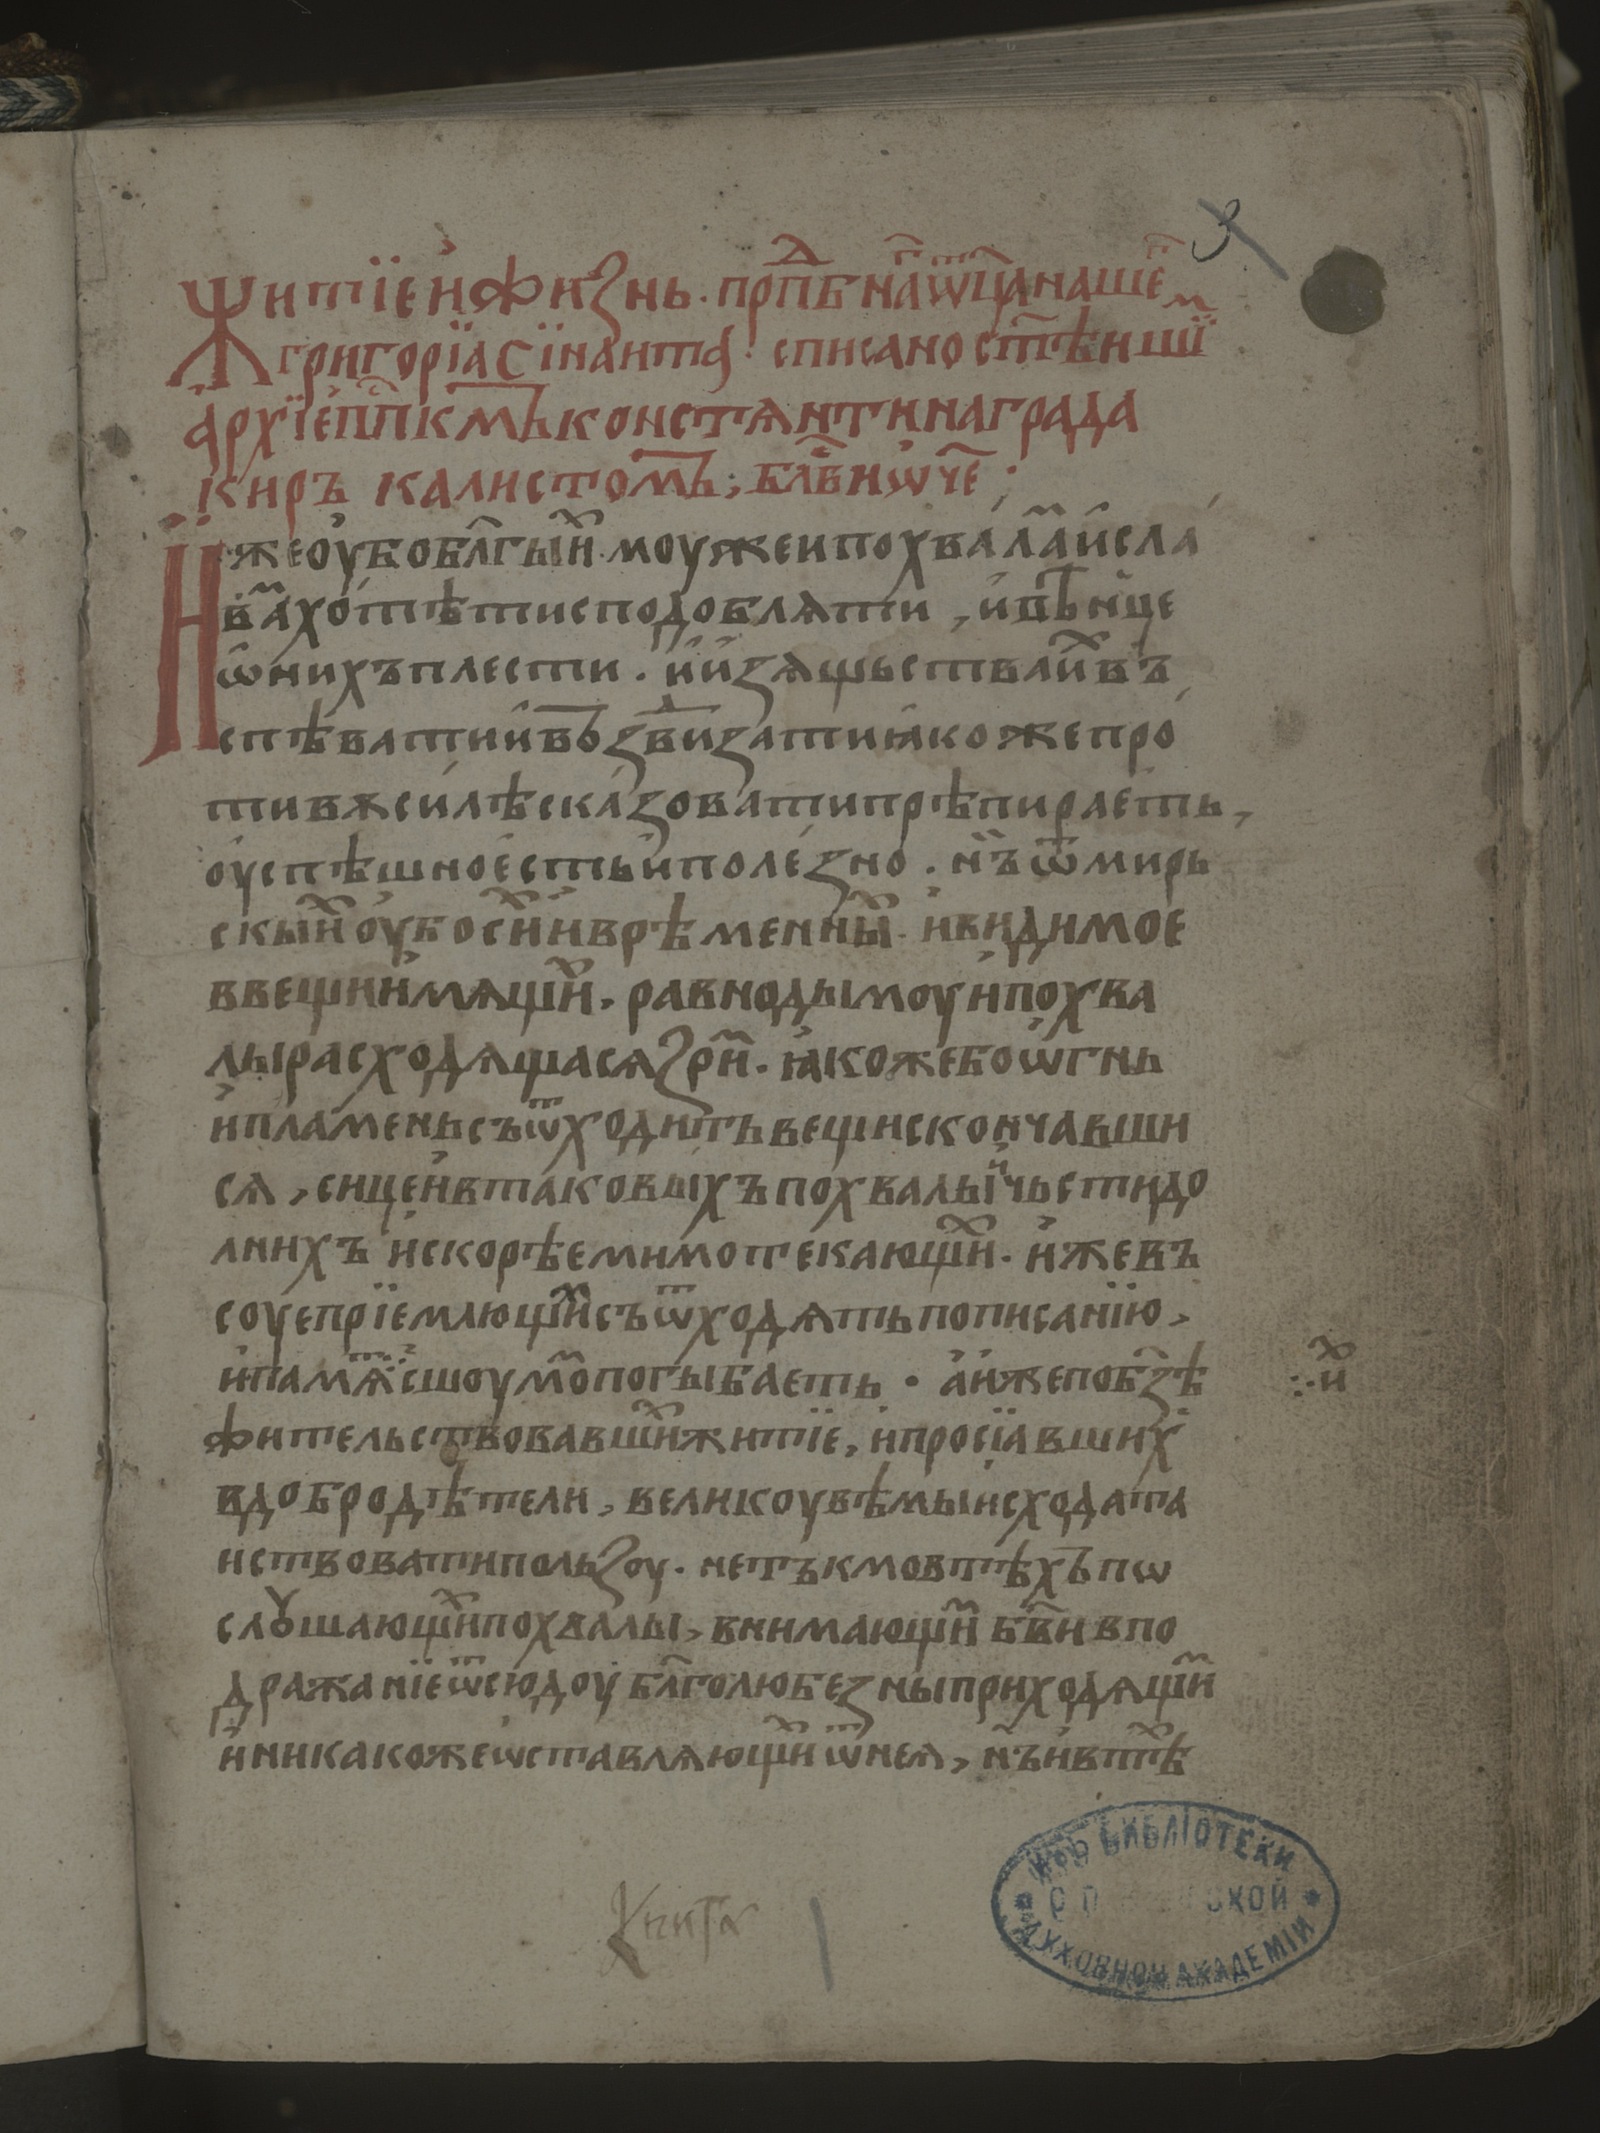 Житїе и жизнь. прпⷣбнаⷢ ѡⷮца нашеⷢ
григорїа сїнаита. списано ст҃ѣишиⷨ
архїеп҃пкⷭмъ константина града
киръ калистомъ; бл҃ви ѡч҃е;
Иже оубо бл҃гыиⷯ моужеи похвалаⷨ и сла
ваⷨ хотѣти сподобляти, и вѣнце
ѡ нихъ плести. и изящьствлиⷯ въ
спѣвати и въздвизати ꙗкоже про
тивѫ силѣ сказовати прѣпираеть,
оуспѣшно есть и полезно. нъ ѡⷮ мирь
скыиⷯ оубо сиⷯ и врѣменныиⷯ. и видимое
в вещи имящиⷯ. равно дымоу и похва
лы расходящася зриⷨ. ꙗкоже бо ѡгнь
и пламень съ ѿходить вещи скончавши
ся, сице и в таковыхъ похвалы и чьсти до
лнихъ и скорѣе мимотекающиⷯ. иже въ
соуе прїемлющиⷨ съ ѿходять по писанїю,
и память с шоумоⷨ погыбаеть. а иже по бз҃ѣ
жительствовавшиⷯ житїе, и просїавшиⷯ
в добродѣтели, великоу вѣмы исходата
иствовати ползоу. не тъкмо в тѣхъ пѡ
слꙋшающиⷯ похвалы, внимающиⷨ бж҃вы в по
дражанїе ѿсюдоу бл҃голюбезны приходящиⷨ
и никакоже ѡставляющиⷯ ѿ нея, нъ и в тѣⷯ
:· иⷯ
Книга
ИЗЪ БИБЛІОТЕКИ
С.П. СКОЙ
ДУХОВНОЙ АКАДЕМІИ